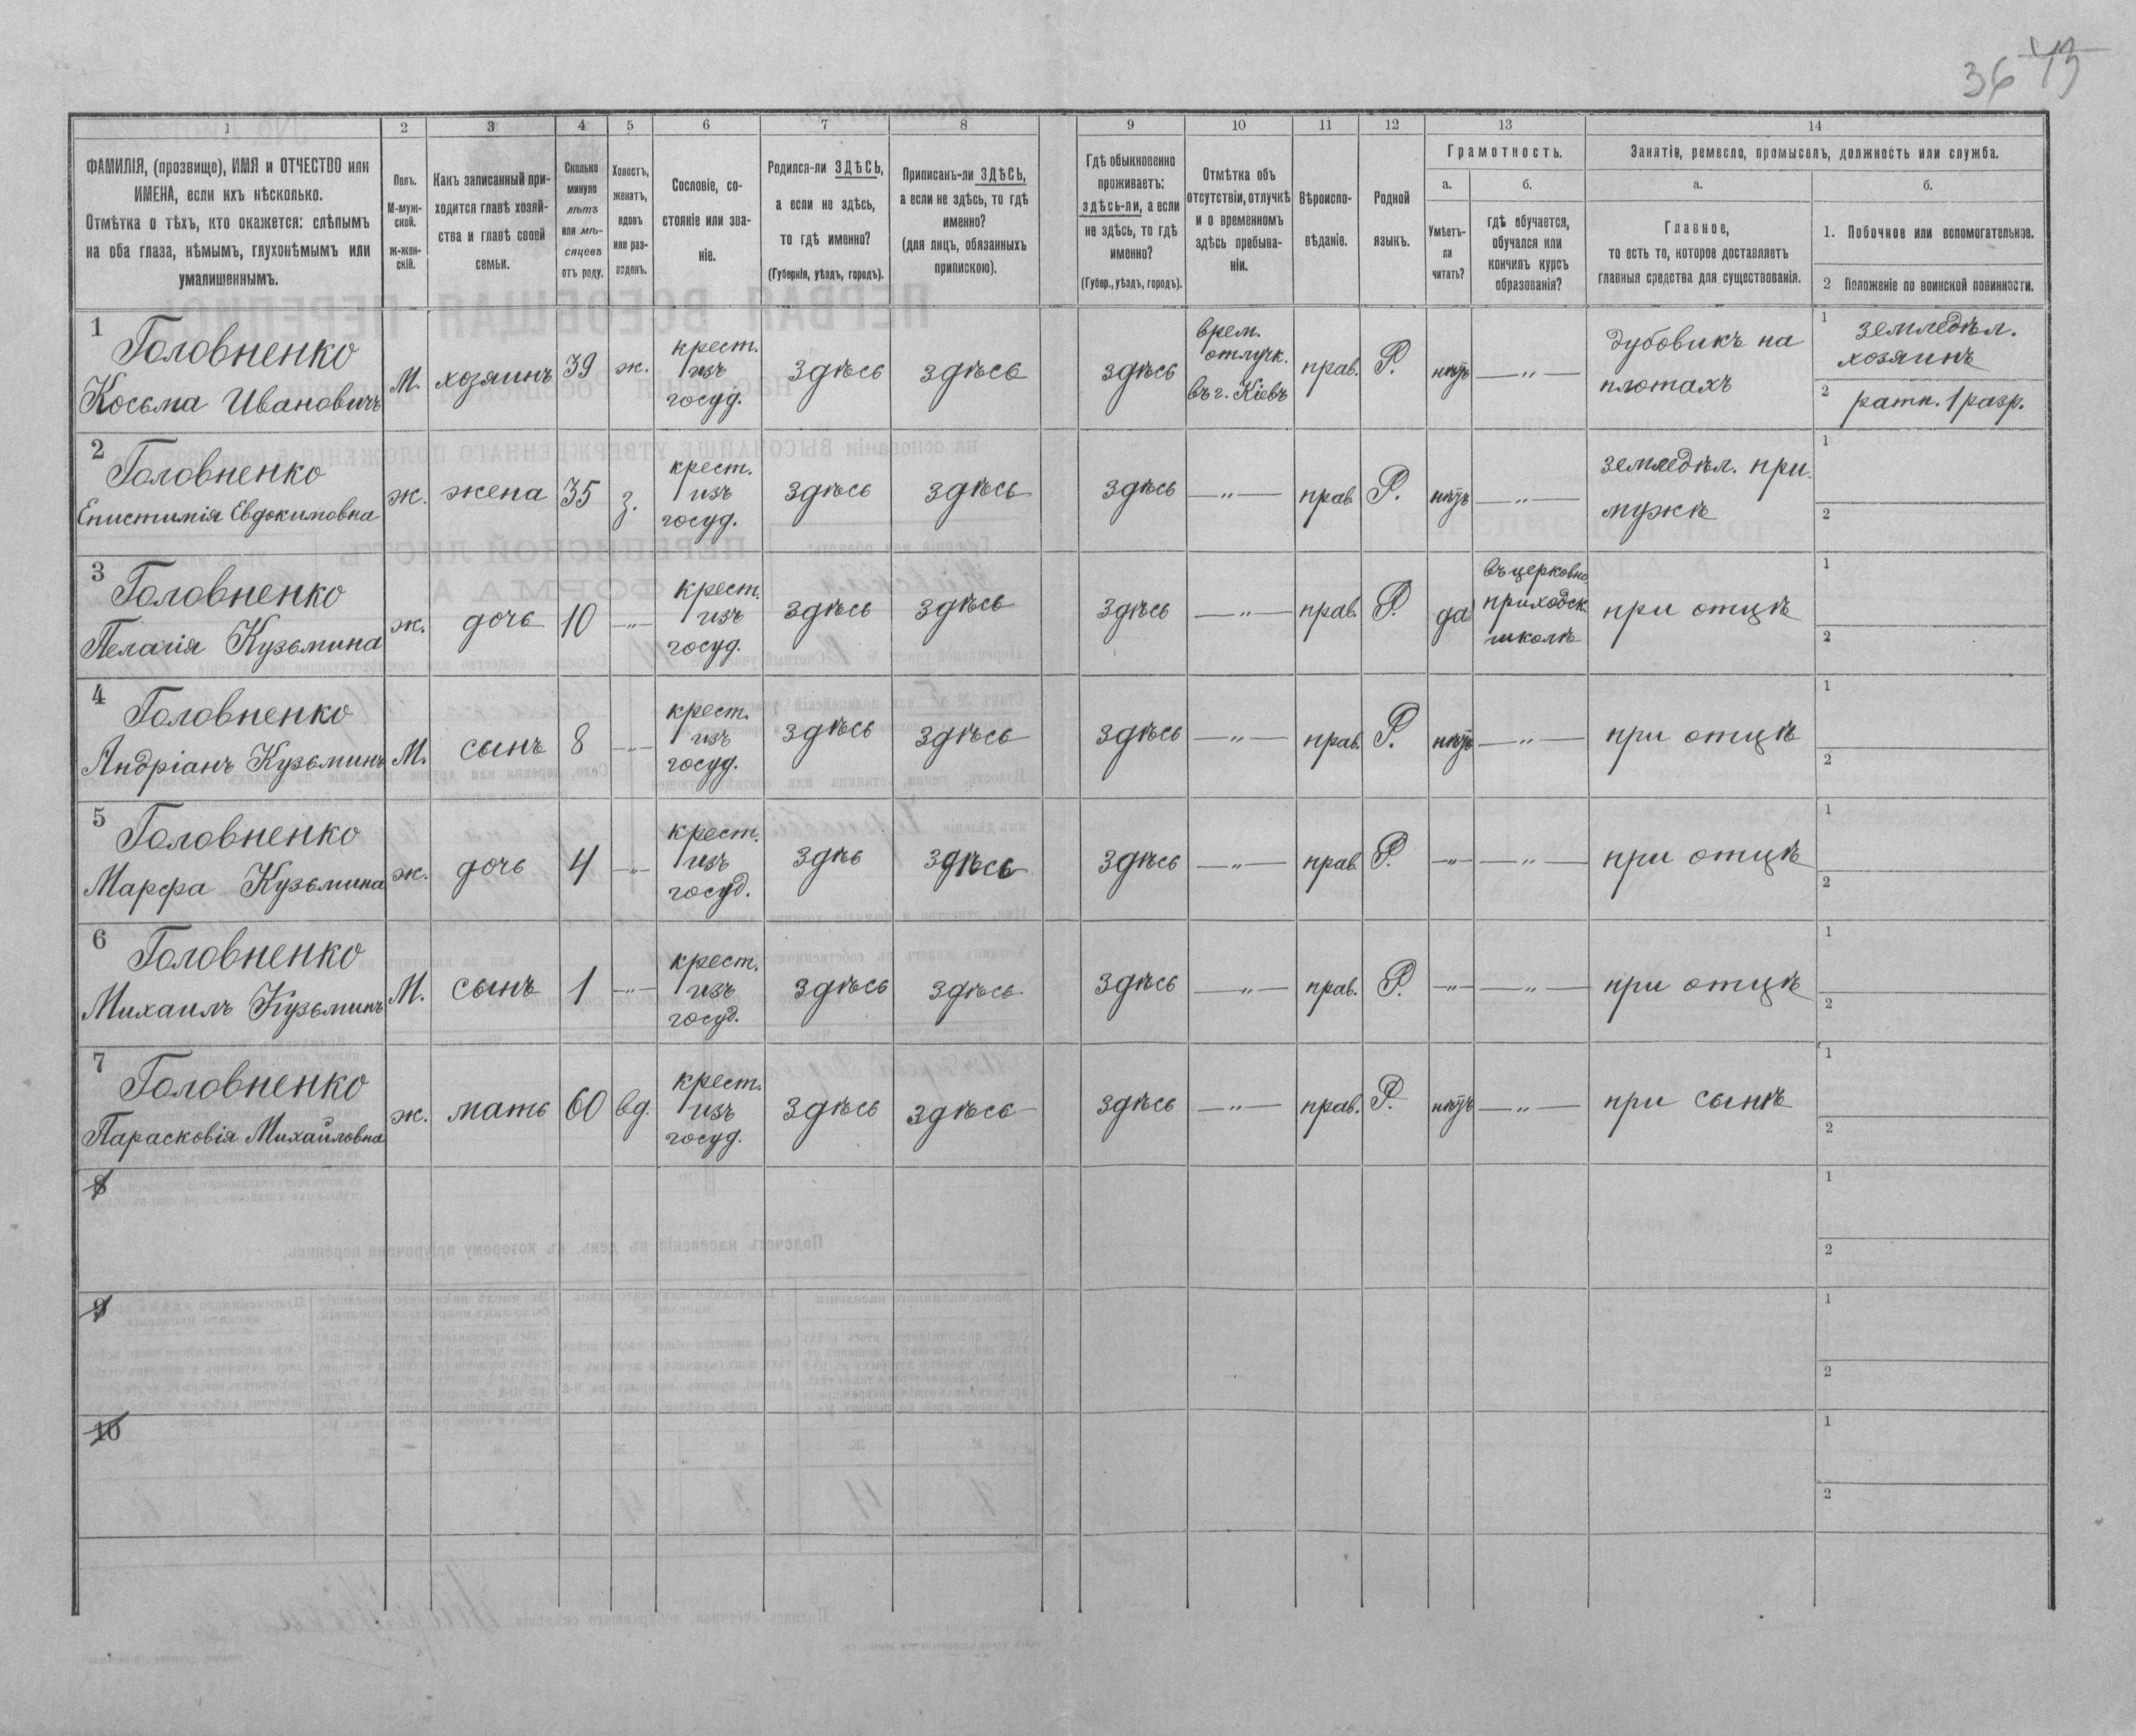 36 43
1 2 3 4 5 6 7 8 9 10 11 12 13 14
ФАМИЛІЯ, (прозвище), ИМЯ и ОТЧЕСТВО или
ИМЕНА, если ихъ нѣсколько.
Отмѣтка о тѣхъ, кто окажется: слѣпымъ
на оба глаза, нѣмымъ, глухонѣмымъ или
умалишеннымъ.
Полъ.
М-муж-
ской.
Ж-жен-
скій.
Какъ записанный при-
ходится главѣ хозяй-
ства и главѣ своей
семьи.
Сколько
минуло
лѣтъ
или мѣ-
сяцевъ
отъ роду.
Холостъ,
женатъ,
вдовъ
или раз-
веденъ.
Сословіе, со-
стояніе или зва-
ніе.
Родился-ли ЗДѢСЬ,
а если не здѣсь,
то гдѣ именно?
(Губернія, уѣздъ, городъ).
Приписанъ-ли ЗДѢСЬ,
а если не здѣсь, то гдѣ
именно?
(для лицъ, обязанныхъ
припискою).
Гдѣ обыкновенно
проживаетъ:
здѣсь-ли, а если
не здѣсь, то гдѣ
именно?
(Губер., уѣздъ, городъ).
Отмѣтка объ
отсутствіи, отлучкѣ
и о временномъ
здѣсь пребыва-
ніи.
Вѣроиспо-
вѣданіе.
Родной
языкъ.
Грамотность.
а.
Умѣетъ-
ли
читать?
б.
гдѣ обучается,
обучался или
кончилъ курсъ
образованія?
Занятіе, ремесло, промыселъ, должность или служба.
а.
Главное,
то есть то, которое доставляетъ
главныя средства для существованія.
б.
1. Побочное или вспомогательное.
2 Положеніе по воинской повинности.
1
Головненко
Косьма Ивановичъ
М.
хозяинъ
39
ж.
крест.
изъ
госуд.
здѣсь
здѣсь
здѣсь
врем.
отлучк.
въ г. Кіевъ
прав.
Р.
нѣтъ
—„—
дубовикъ на
плотахъ
1 земледѣл.
хозяинъ
2 ратн. 1 разр.
2
Головненко
Епистимія Евдокимовна
ж.
жена
35
з.
крест.
изъ
госуд.
здѣсь
здѣсь
здѣсь
—„—
прав.
Р.
нѣтъ
—„—
земледѣл. при
мужѣ
1
2
3
Головненко
Пелагія Кузьмина
ж.
дочь
10
—„—
крест.
изъ
госуд.
здѣсь
здѣсь
здѣсь
—„—
прав.
Р.
да
въ церковно
приходск.
школѣ
при отцѣ
1
2
4
Головненко
Андріанъ Кузьминъ
М.
сынъ
8
—„—
крест.
изъ
госуд.
здѣсь
здѣсь
здѣсь
—„—
прав.
Р.
нѣтъ
—„—
при отцѣ
1
2
5
Головненко
Марфа Кузьмина
ж.
дочь
4
—„—
крест.
изъ
госуд.
здѣс
здѣсь
здѣсь
—„—
прав.
Р.
—„—
—„—
при отцѣ
1
2
6
Головненко
Михаилъ Кузьминъ
М.
сынъ
1
—„—
крест.
изъ
госуд.
здѣсь
здѣсь
здѣсь
—„—
прав.
Р.
—„—
—„—
при отцѣ
1
2
7
Головненко
Парасковія Михайловна
ж.
мать
60
вд.
крест.
изъ
госуд.
здѣсь
здѣсь
здѣсь
—„—
прав.
Р.
нѣтъ
—„—
при сынѣ
1
2
8
1
2
9
1
2
10
1
2